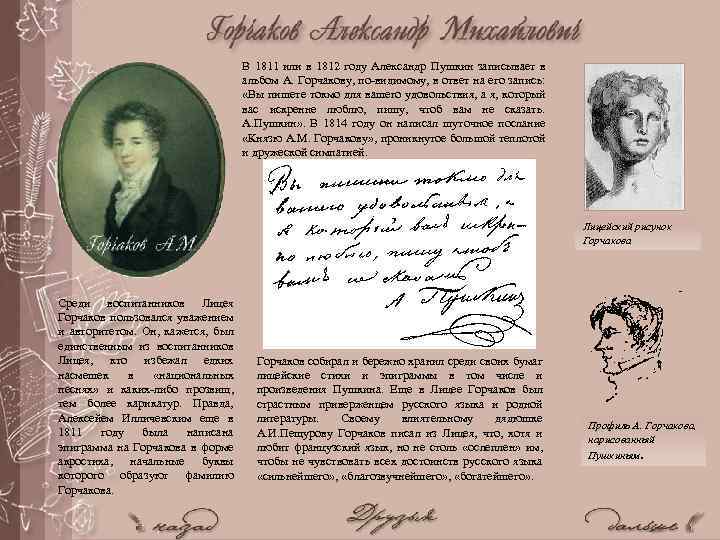 Горчаков Александр Михайлович
В 1811 или в 1812 году Александр Пушкин записывает в
альбом А. Горчакову, по-видимому, в ответ на его запись:
«Вы пишете токмо для вашего удовольствия, а я, который
вас искренне люблю, пишу, чтоб вам не сказать.
А.Пушкин». В 1814 году он написал шуточное послание
«Князю А.М. Горчакову», проникнутое большой теплотой
и дружеской симпатией.
Горчаков А.М.
Вы пишите токмо для
вашего удовольствия, а
я который васъ искрен-
но люблю, пишу чтобъ
вамъ не сказать
А Пушкинъ
Лицейский рисунок
Горчакова
Среди воспитанников Лицея
Горчаков пользовался уважением
и авторитетом. Он, кажется, был
единственным из воспитанников
Лицея, кто избежал едких
насмешек в «национальных
песнях» и каких-либо прозвищ,
тем более карикатур. Правда,
Алексеем Илличевским еще в
1811 году была написана
эпиграмма на Горчакова в форме
акростиха, начальные буквы
которого образуют фамилию
Горчакова.
Горчаков собирал и бережно хранил среди своих бумаг
лицейские стихи и эпиграммы в том числе и
произведения Пушкина. Еще в Лицее Горчаков был
страстным приверженцем русского языка и родной
литературы. Своему влиятельному дядюшке
А.И.Пещурову Горчаков писал из Лицея, что, хотя и
любит французский язык, но не столь «ослеплен» им,
чтобы не чувствовать всех достоинств русского языка
«сильнейшего», «благозвучнейшего», «богатейшего».
Профиль А. Горчакова,
нарисованный
Пушкиным.
назад
Друзья
дальше